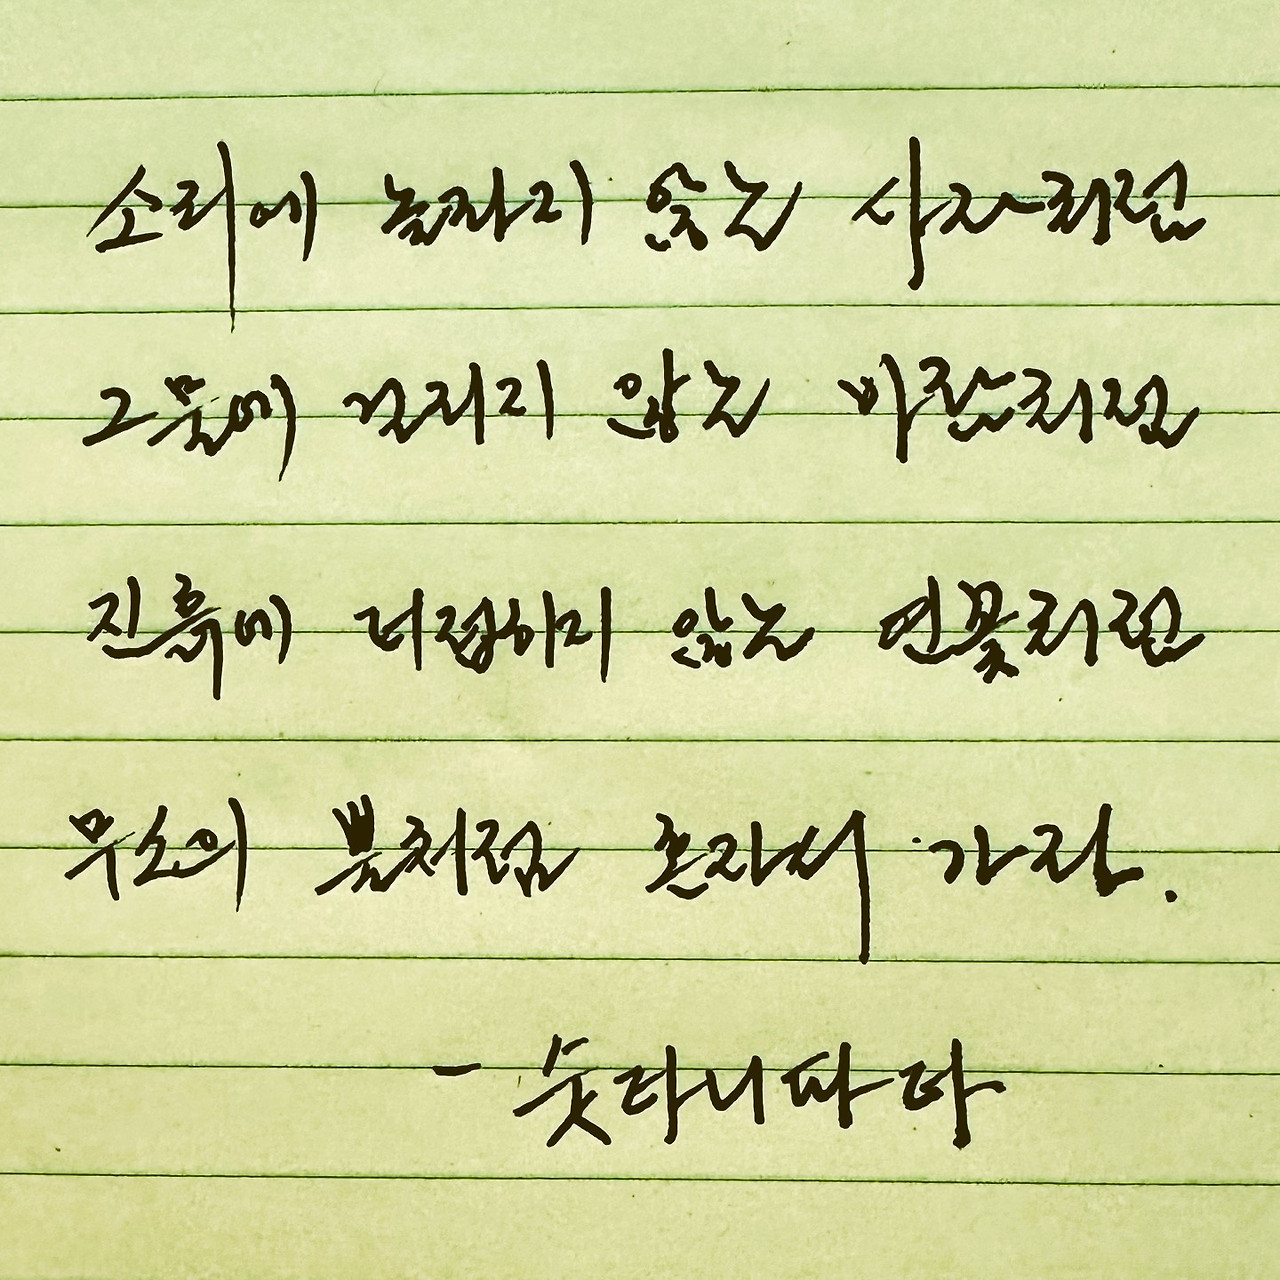 소리에 놀라지 않는 사자처럼
그물에 걸리지 않는 바람처럼
진흙에 더럽히지 않는 연꽃처럼
무소의 뿔처럼 혼자서 가라.
- 숫타니파타